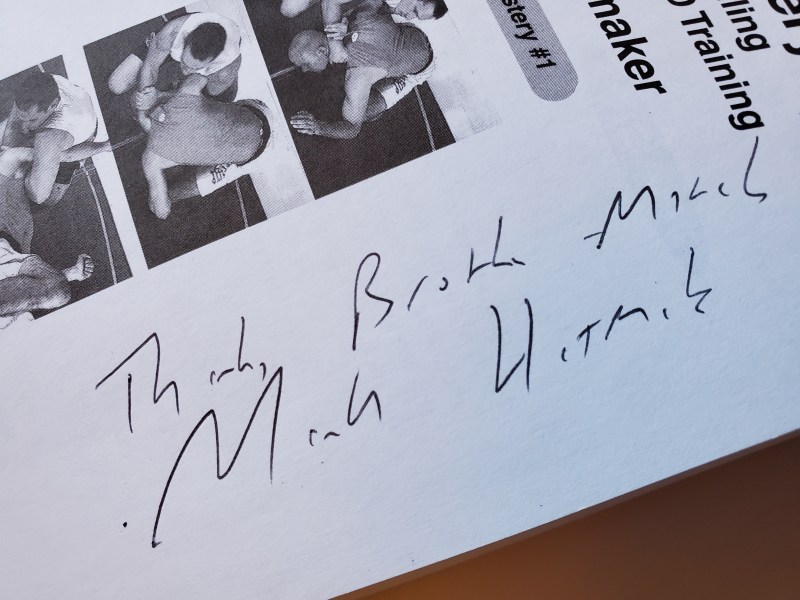 ery
lling
) Training
maker
stery #1
Thanks, Brother
Mark Hatmaker